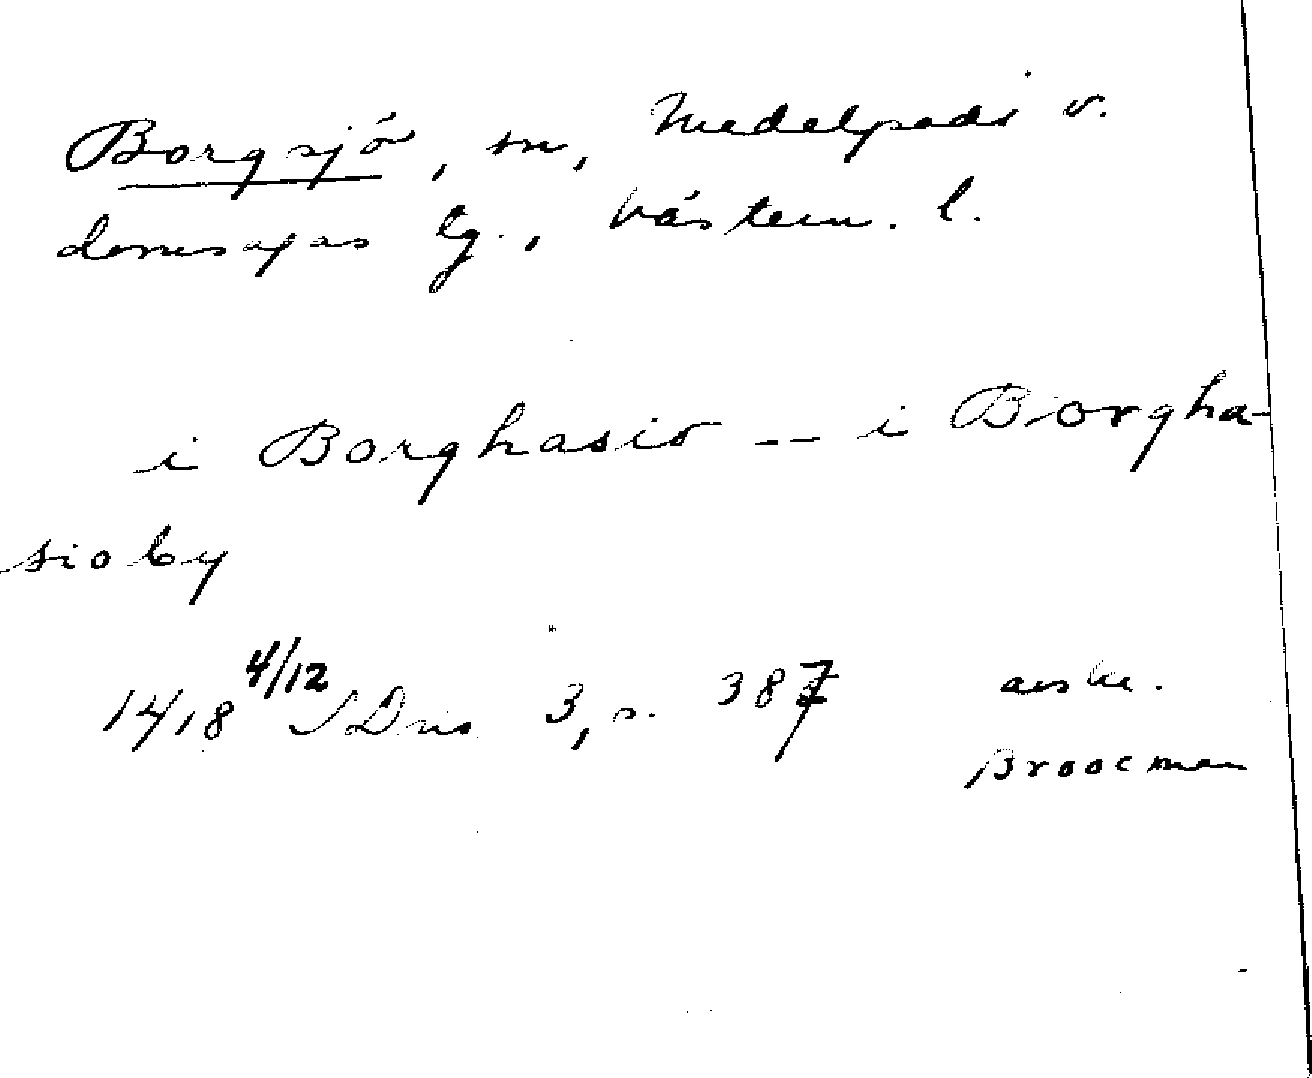 Borgsjö, sn, Medelpads v.
domsagas lg., Västern. l.
i Borghasio -- i Borgha-
sioby
1418 4/12 SDns 3, s. 387 avskr.
Broocman